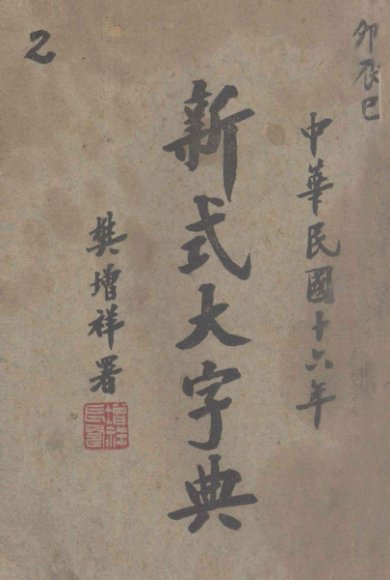 卯辰巳
中華民國十六年
新式大字典
樊增祥署
2